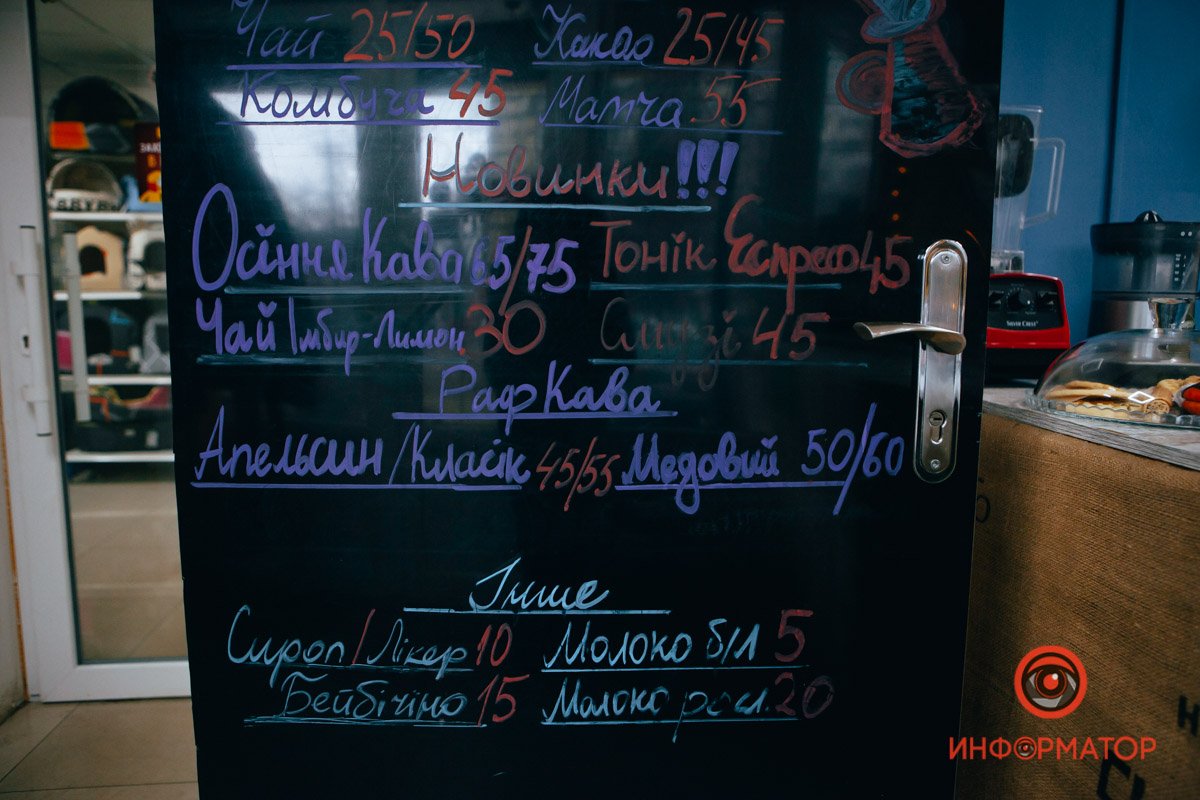 Чай 25/50 Какао 25/45
Комбуча 45 Матча 55
Новинки!!!
Осіння Кава 65/75 Тонік Еспресо 45
Чай Імбир-Лимон 30 Смузі 45
Раф Кава
Апельсин/Класік 45/55 Медовий 50/60
Інше
Сироп/Лікер 10 Молоко б/л 5
Бейбічіно 15 Молоко росл. 20
SILVER CREST
ИНФОРМАТОР